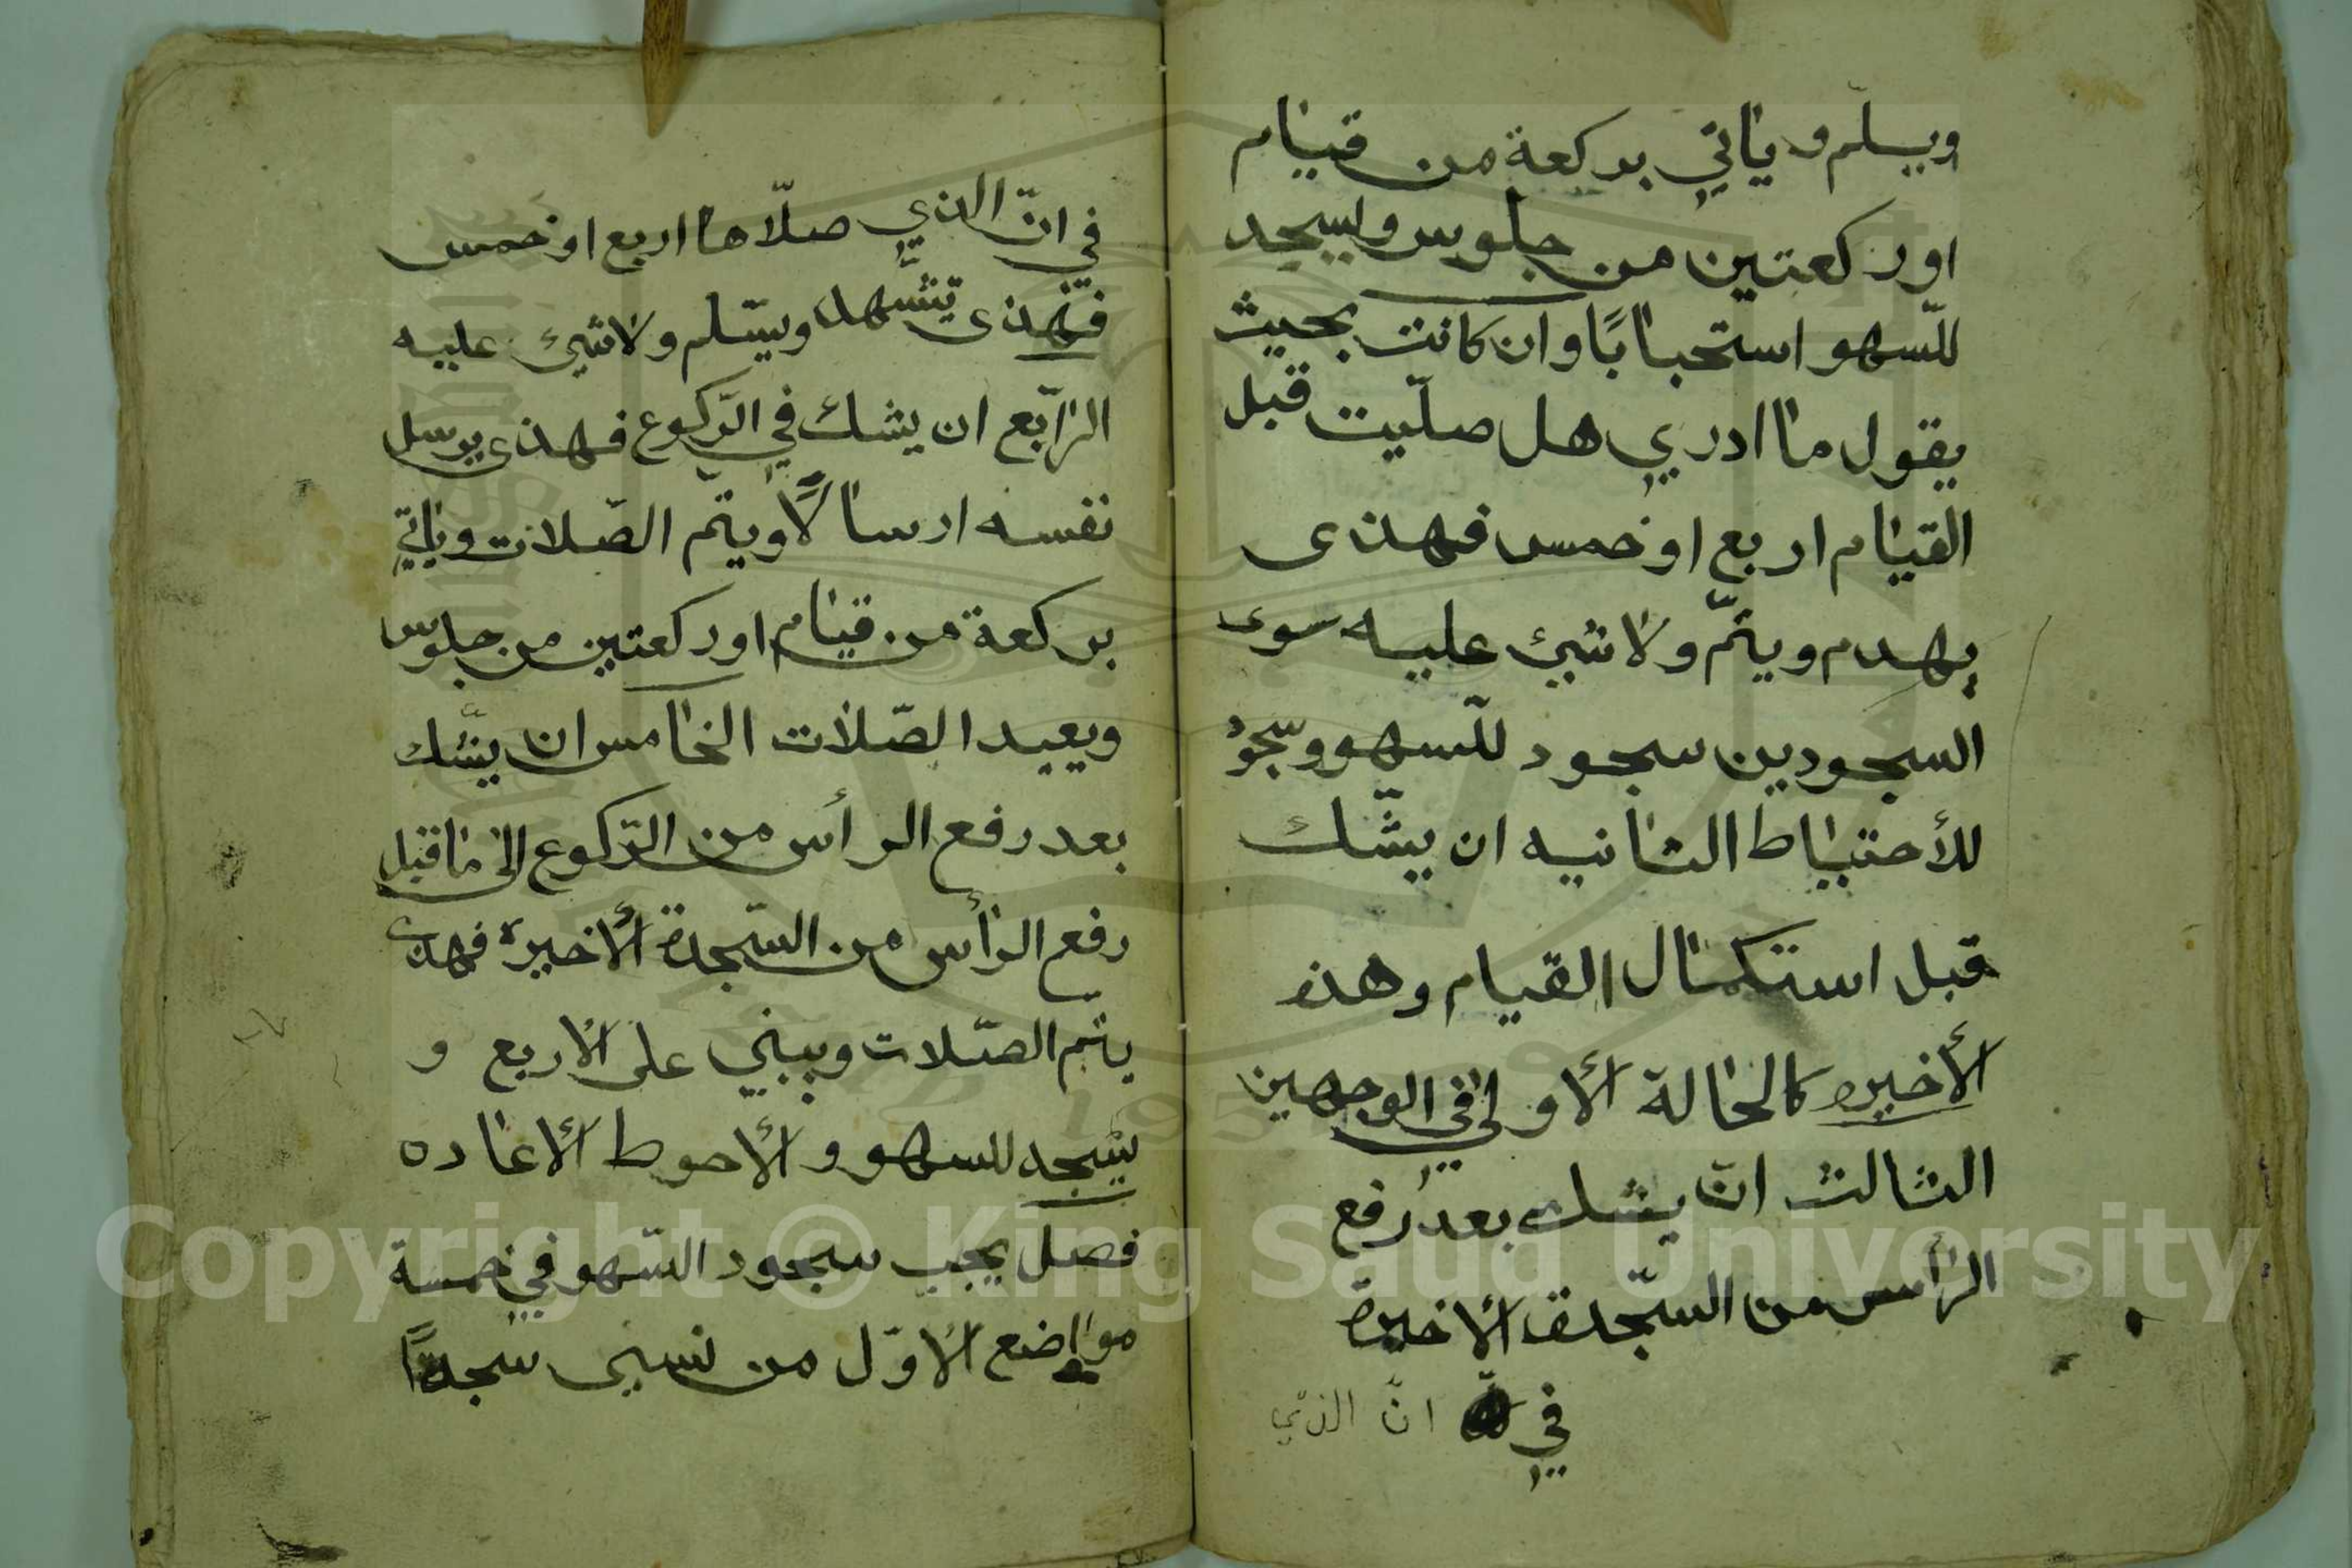 ويسلّم وياتي بركعة من قيام
اوركعتين من جلوس ويسجد
للسّهو استحبابًا وان كانت بحيث
يقول ما ادري هل صلّيت قبل
القيام اربع او خمس فهذى
يهدم ويتمّ ولا شيئ عليه سوى
السجودين سجود للسّهو وسجوْ
للأحتياط الثانيه ان يشّك
قبل استكمال القيام وهذه
الأخيره كالحالة الأولى في الوجهين
الثالث انّ يشك بعد رفع
الرأس من السّجدة الأخيرة
في انّ الذي
في انّ الذي صلّاها اربع او خمس
فهذى يتشّهد ويسّلم ولا شيئ عليه
الرّابع ان يشك في الرّكوع فهذى يرسل
نفسه ارسالًا ويتمّ الصّلات وياتي
بركعة من قيام اوركعتين من جلوس
ويعيد الصّلات الخامس ان يشّك
بعد رفع الرأس من الرّكوع الى ما قبل
رفع الرأس من السّجدة الأخيرة فهذى
يتم الصّلات ويبني على الأربع و
يسجد للسهو و الأحوط الأعاده
فصل يجب سجود السّهو في خمسة
مواضع الأوّل من نسى سجدتًا
Copyright © King Saud University